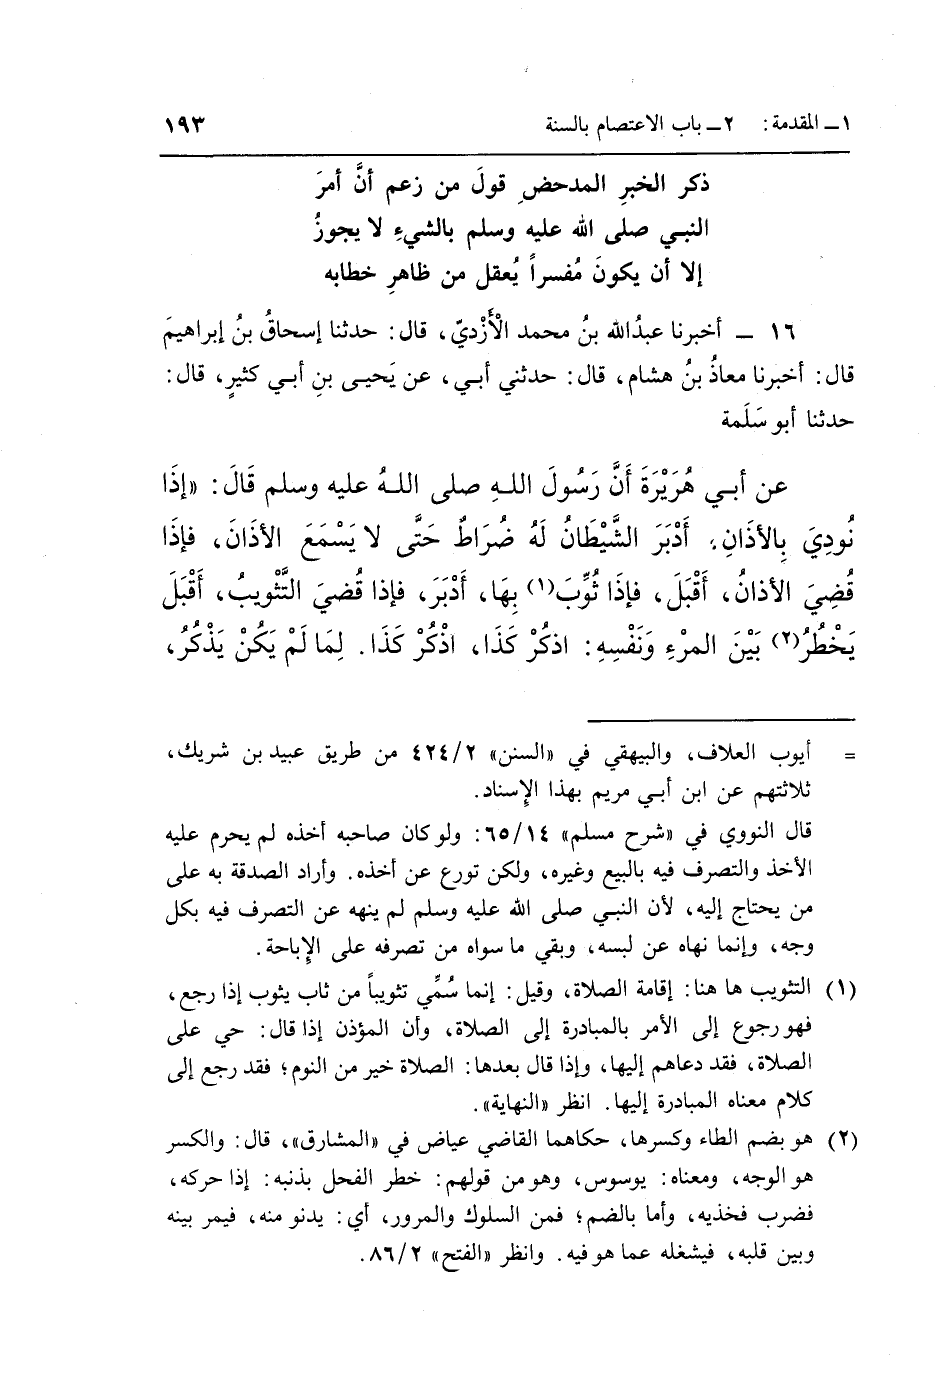 ١ ـ المقدمة: ٢ ـ باب الاعتصام بالسنة ١٩٣
ذكر الخبرِ المدحضِ قولَ من زعم أنَّ أمرَ
النبي صلى الله عليه وسلم بالشيءِ لا يجوزُ
إلا أن يكونَ مُفسراً يُعقل من ظاهرِ خطابه
١٦ ـ أخبرنا عبدُالله بنُ محمد الْأَزْديّ، قال: حدثنا إسحاقُ بنُ إبراهيمَ
قال: أخبرنا معاذُ بنُ هشام، قال: حدثني أبي، عن يَحيى بنِ أبي كثيرٍ، قال:
حدثنا أبو سَلَمة
عن أبي هُرَيْرَةَ أَنَّ رَسُولَ اللهِ صلى اللهُ عليه وسلم قَالَ: «إذَا
نُودِيَ بِالأذَانِ، أَدْبَرَ الشَّيْطَانُ لَهُ ضُرَاطٌ حَتَّى لا يَسْمَعَ الأذَانَ، فإذَا
قُضِيَ الأذانُ، أَقْبَلَ، فإذَا ثُوِّبَ(١) بِهَا، أَدْبَرَ، فإذا قُضيَ التَّثْويبُ، أَقْبَلَ
يَخْطُرُ(٢) بَيْنَ المرْءِ وَنَفْسِهِ: اذكُرْ كَذَا، اذْكُرْ كَذَا. لِمَا لَمْ يَكُنْ يَذْكُرُ،
= أيوب العلاف، والبيهقي في «السنن» ٤٢٤/٢ من طريق عبيد بن شريك،
ثلاثتهم عن ابن أبي مريم بهذا الإسناد.
قال النووي في «شرح مسلم» ٦٥/١٤: ولو كان صاحبه أخذه لم يحرم عليه
الأخذ والتصرف فيه بالبيع وغيره، ولكن تورع عن أخذه. وأراد الصدقة به على
من يحتاج إليه، لأن النبي صلى الله عليه وسلم لم ينهه عن التصرف فيه بكل
وجه، وإنما نهاه عن لبسه، وبقي ما سواه من تصرفه على الإباحة.
(١) التثويب ها هنا: إقامة الصلاة، وقيل: إنما سُمِّي تثويباً من ثاب يثوب إذا رجع،
فهو رجوع إلى الأمر بالمبادرة إلى الصلاة، وأن المؤذن إذا قال: حي على
الصلاة، فقد دعاهم إليها، وإذا قال بعدها: الصلاة خير من النوم؛ فقد رجع إلى
كلام معناه المبادرة إليها. انظر «النهاية».
(٢) هو بضم الطاء وكسرها، حكاهما القاضي عياض في «المشارق»، قال: والكسر
هو الوجه، ومعناه: يوسوس، وهو من قولهم: خطر الفحل بذنبه: إذا حركه،
فضرب فخذيه، وأما بالضم؛ فمن السلوك والمرور، أي: يدنو منه، فيمر بينه
وبين قلبه، فيشغله عما هو فيه. وانظر «الفتح» ٨٦/٢.